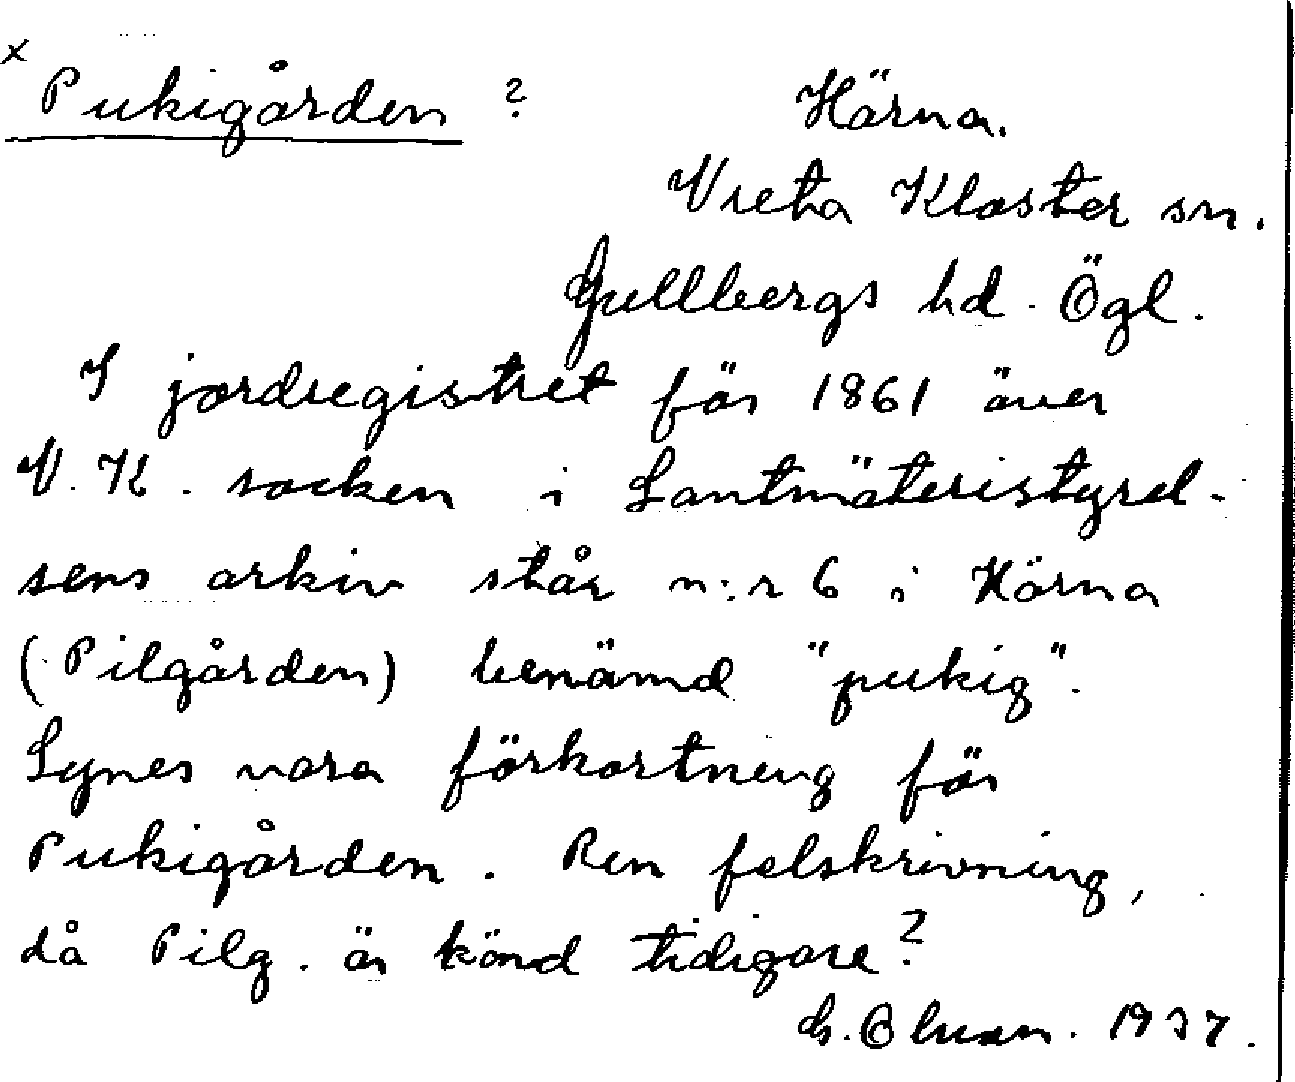 x Pukigården ? Härna.
Vreta Kloster sn.
Gullbergs hd. Ögl.
I jordregistret för 1861 över
V. K. socken i Lantmäteristyrel-
sens arkiv står n:r 6 i Härna
(Pilgården) benämd "pukig".
Synes vara förkortning för
Pukigården. Ren felskrivning,
då Pilg. är känd tidigare?
1937.